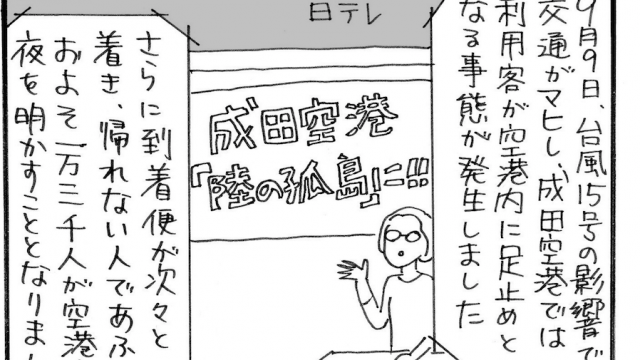 9月9日、台風15号の影響で
交通がマヒし、成田空港では
利用客が空港内に足止めと
なる事態が発生しました
日テレ
成田空港
「陸の孤島」に!!
さらに到着便が次々と
着き、帰れない人であふ
およそ一万三千人が空港
夜を明かすこととなりまし